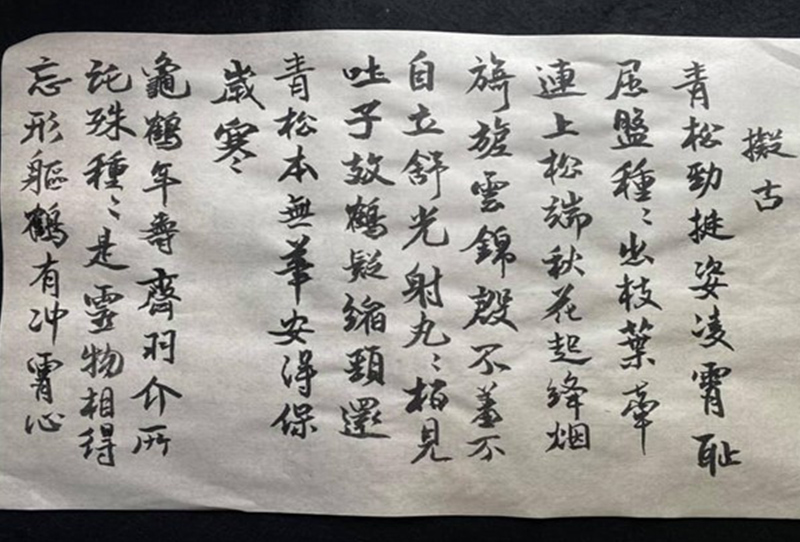 擬古
青松勁挺姿凌霄耻
屈盤種〻出枝葉牽
連上松端秋花起絳烟
旖旎雲錦殷不羞不
自立舒光射丸〻栢見
吐子效鶴疑縮頸還
青松本無華安得保
歲寒
龜鶴年壽齊羽介所
託殊種〻是靈物相得
忘形軀鶴有冲霄心